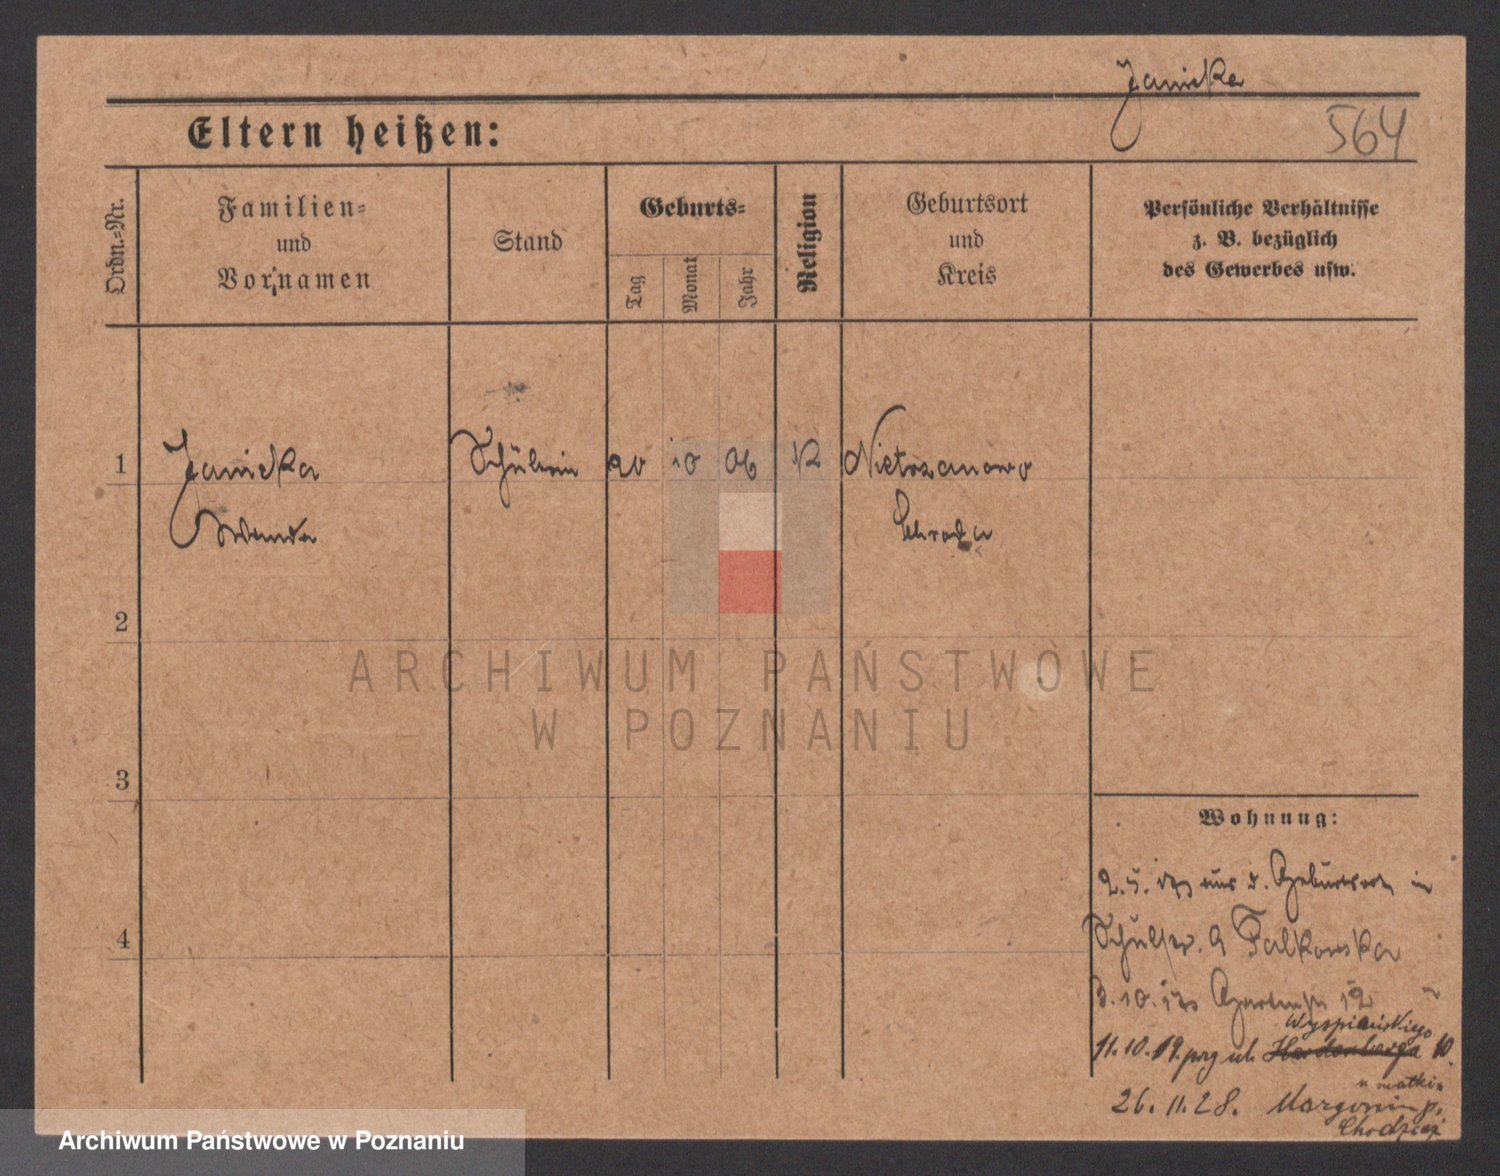 Janicka
564
Eltern heißen:
Ordn.=Nr.
Familien=
und
Vornamen
Stand
Geburts=
Tag
Monat
Jahr
Religion
Geburtsort
und
Kreis
Persönliche Verhältnisse
z. B. bezüglich
des Gewerbes usw.
1
Janicka Schülerin 20 10 06 K Nietrzanowo
Wanda Schroda
2
3
Wohnung:
aus d. Geburtsort in
4
Falkowska
3.10. Gartenstr 12
Wyspiańskiego
11.10.19. prg ul. Hardenberga 10.
u matki
26.11.28. Margonin p.
Chodzież
ARCHIWUM PAŃSTWOWE
W POZNANIU
Archiwum Państwowe w Poznaniu